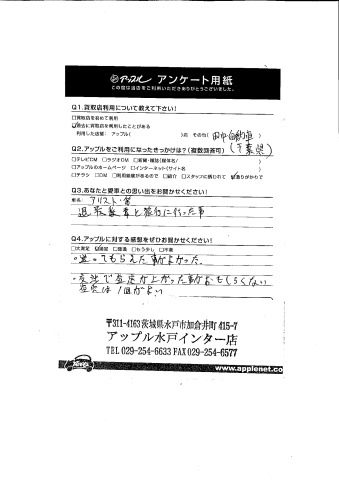 アップル アンケート用紙
この度は当店をご利用いただきありがとうございました。
Q1.買取店利用について教えて下さい!
□買取店を初めて利用
☑過去に買取店を利用したことがある
利用した店舗: アップル( )店 その他(田中自動車)
(千葉県)
Q2.アップルをご利用になったきっかけは?(複数回答可)
□テレビCM □ラジオCM □新聞・雑誌(媒体名/ )
□アップルのホームページ □インターネット(サイト名 )
□チラシ □DM □利用経験があるので □紹介 □スタッフに誘われて ☑通りがかりで
Q3.あなたと愛車との思い出をお聞かせください!
車名: アリスト・
と旅行に行った事
Q4.アップルに対する感想をぜひお聞かせください!
□大満足 ☑満足 □普通 □もう少し □不満
・ てもらえた事がよかった。
・交渉で査定が上がった事がおもしろくない
査定は1回がよい
〒311-4163茨城県水戸市加倉井町415-7
アップル水戸インター店
TEL 029-254-6633 FAX029-254-6577
www.applenet.co